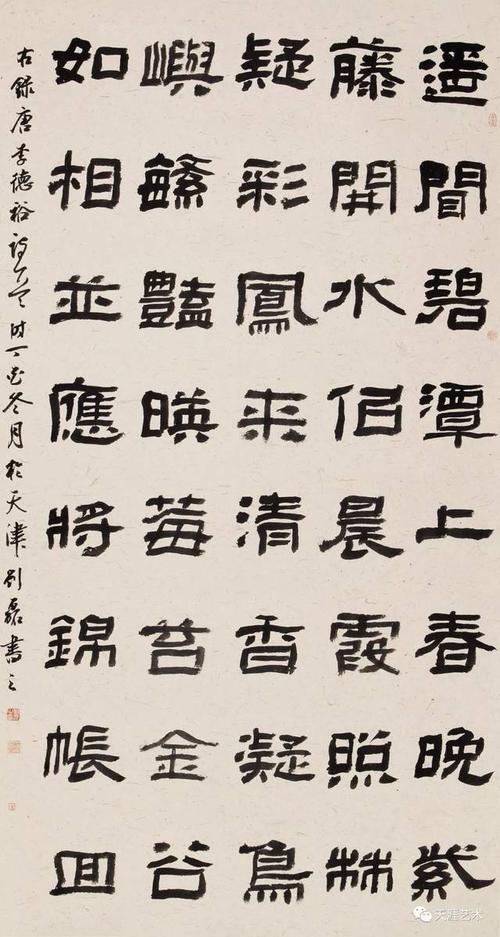 遥聞碧潭上春晚紫
藤開水佀晨霞照林
疑彩鳳來清香凝鳥
嶼繁豔暎莓苔金谷
如相並應將錦帳回
右錄唐李德裕詩一首时丁酉冬月於天津刘磊書之
天涯艺术